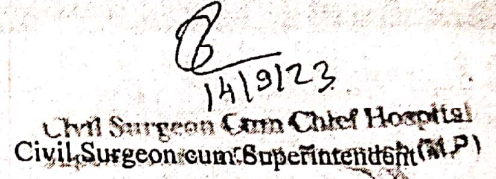 14/9/23
Civil Surgeon Cum Chief Hospital
Civil Surgeon cum Superintendent (M.P)